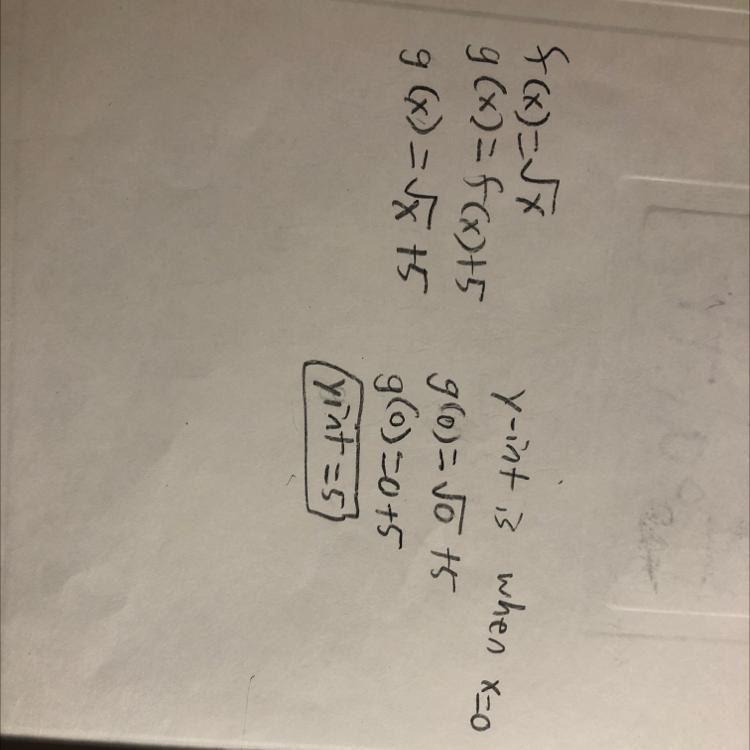 f(x)=√x
g(x)=f(x)+5
g(x)=√x +5
y-int is when x=0
g(0)=√0 +5
g(0)=0+5
yint=5